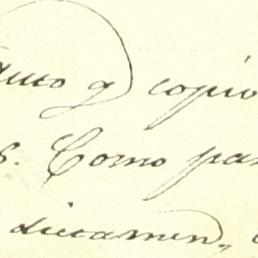 y copio
s. Como par
dictamen,